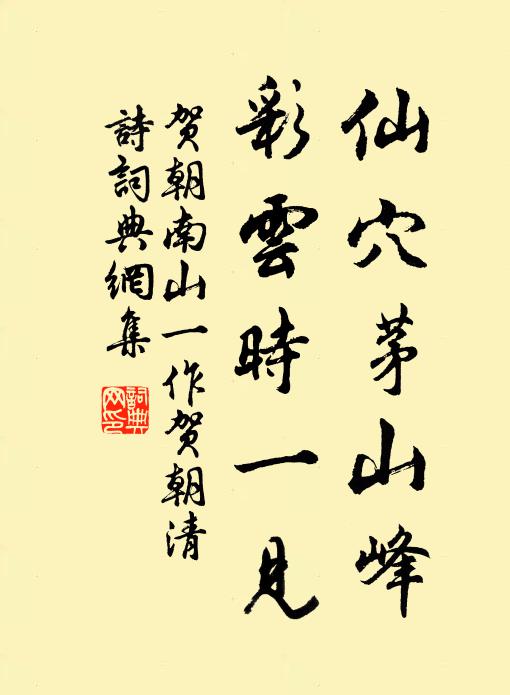 仙穴茅山峰
彩雲時一見
賀朝南山一作賀朝清
詩詞典網集
詞典
网印